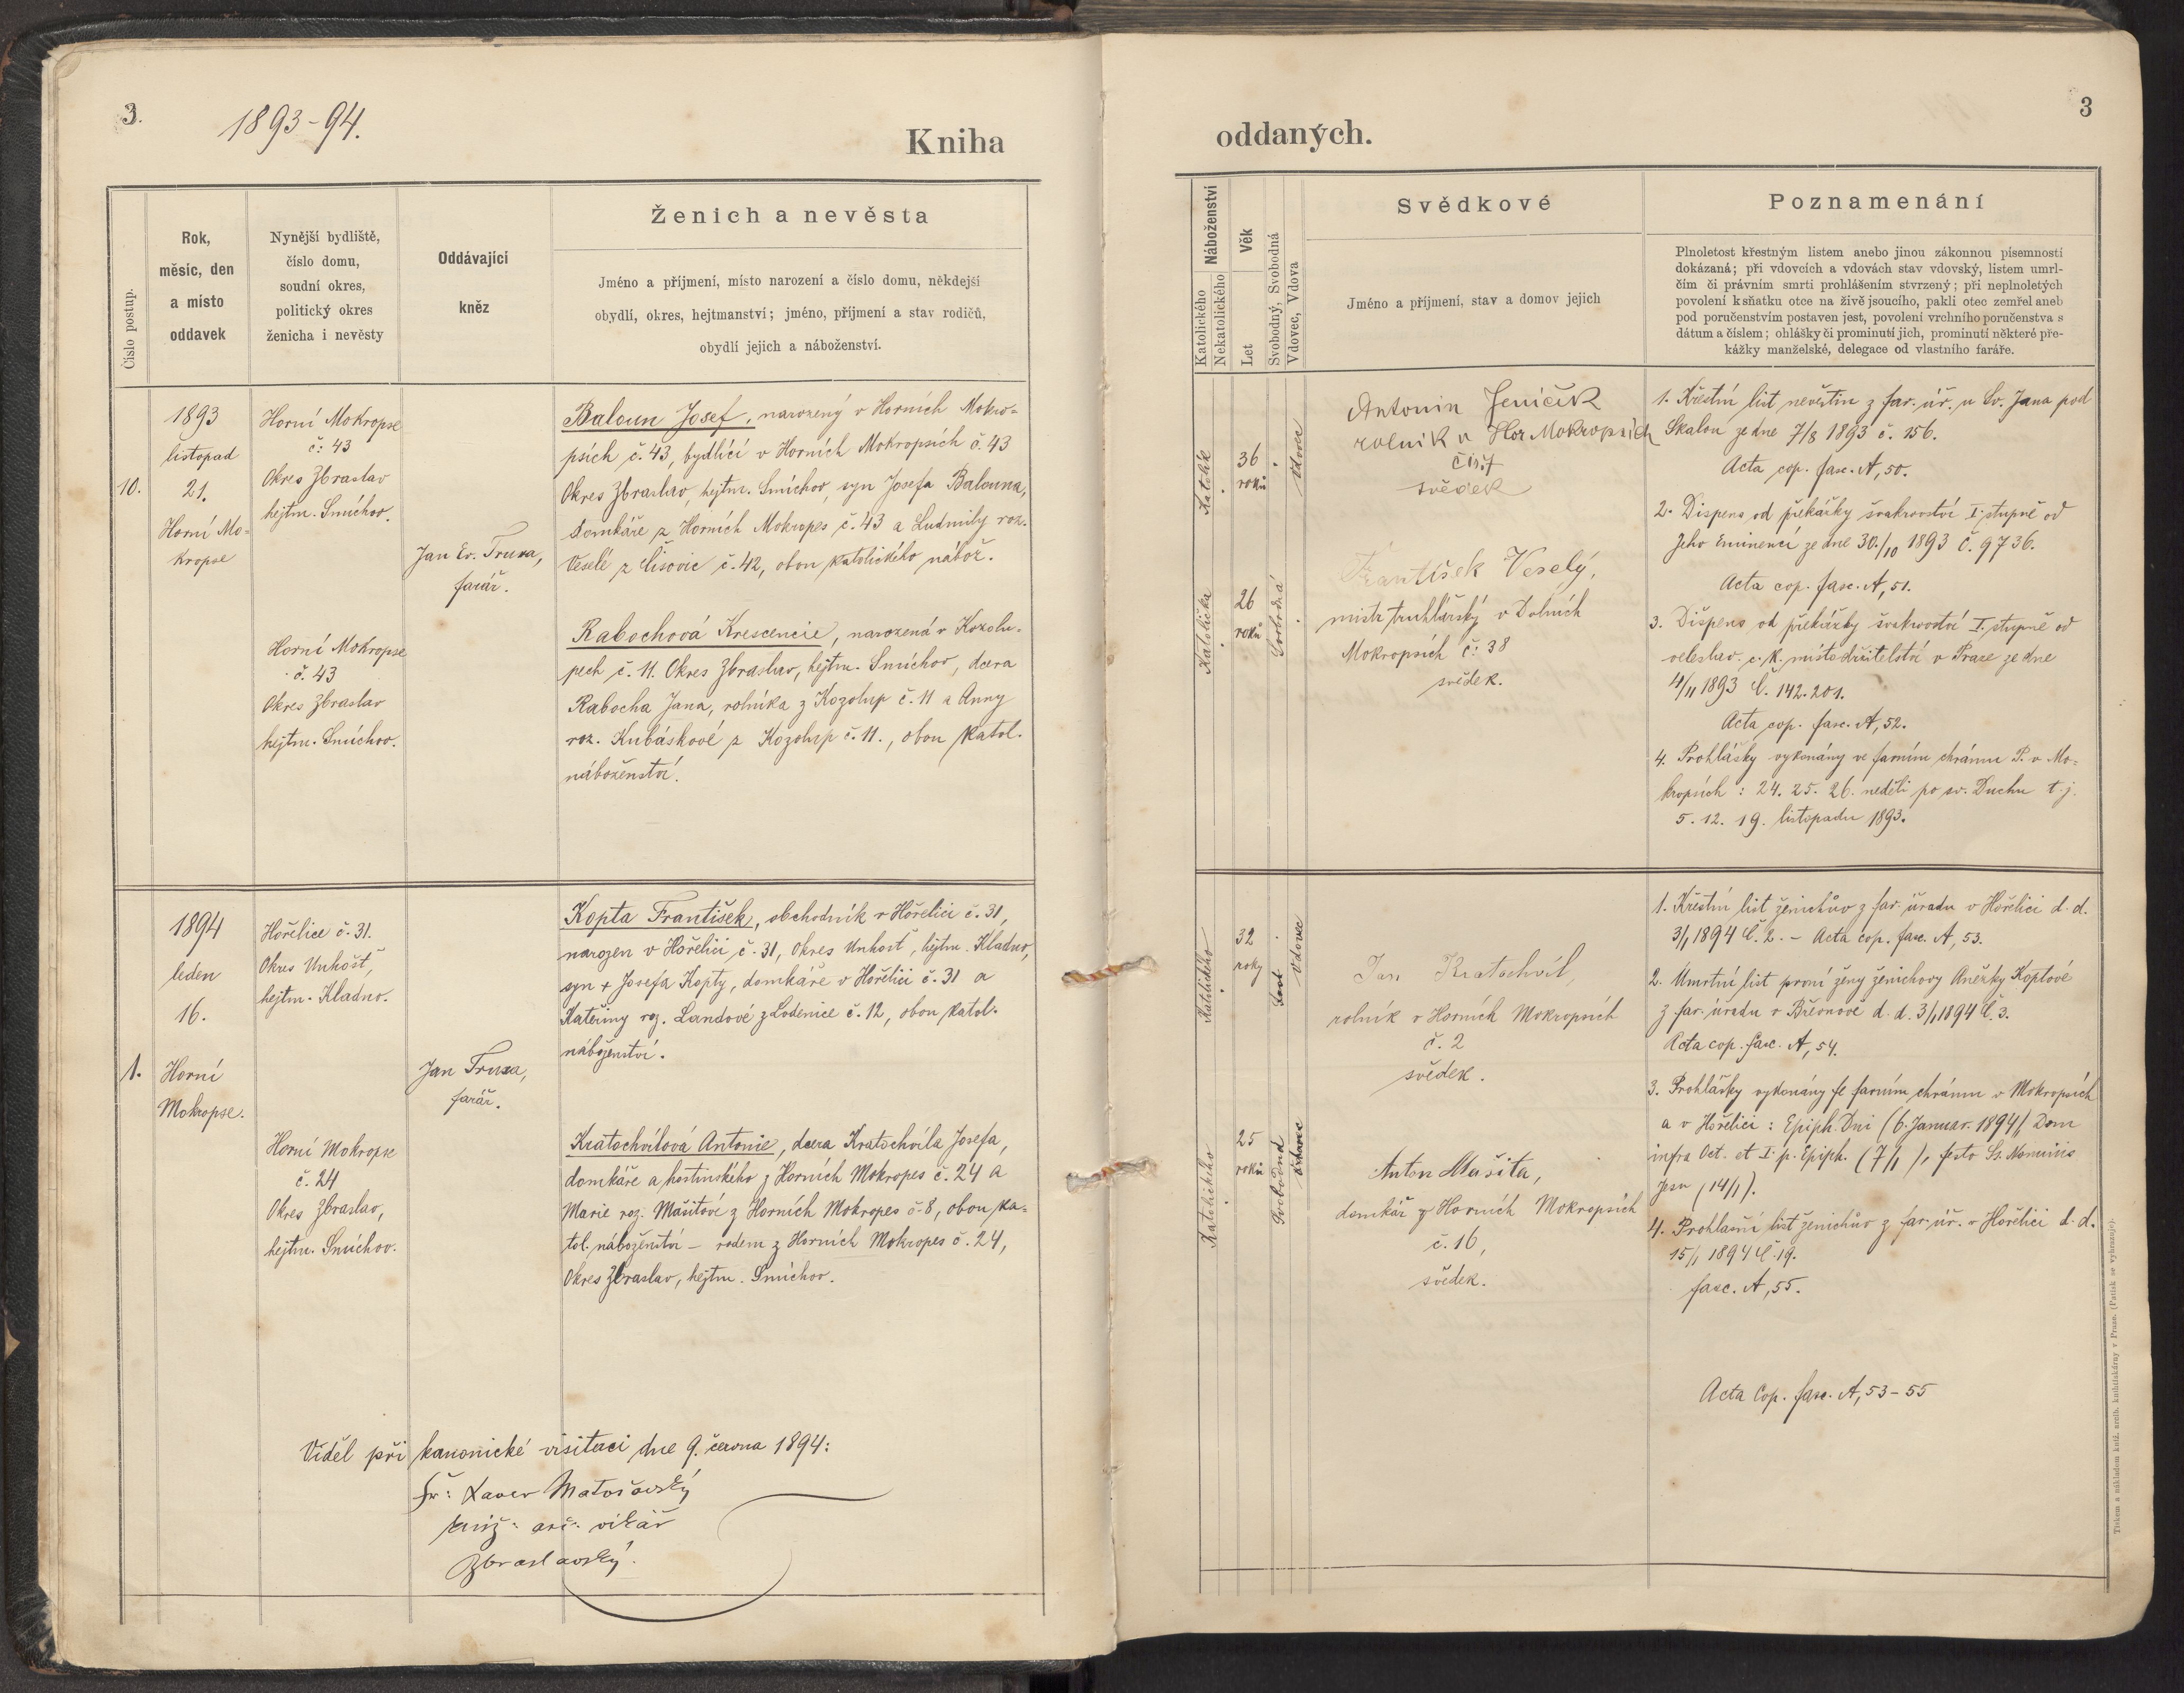 3.
1893-94.
Kniha
Číslo postup.
Rok,
měsíc, den
a místo
oddavek
Nynější bydliště,
číslo domu,
soudní okres,
politický okres
ženicha i nevěsty
Oddávající
kněz
Ženich a nevěsta
Jméno a příjmení, místo narození a číslo domu, někdejší
obydlí, okres, hejtmanství; jméno, příjmení a stav rodičů,
obydlí jejich a náboženství.
10.
1893
listopad
21.
Horní Mo-
kropse
Horní Mokropse
č: 43
Okres Zbraslav
hejtm. Smíchov.
Horní Mokropse
č. 43
Okres Zbraslav
hejtm. Smíchov.
Jan Ev. Truxa,
farář.
Baloun Josef, narozený v Horních Mokro-
psích č. 43, bydlící v Horních Mokropsích č. 43
Okres Zbraslav, hejtm. Smíchov, syn Josefa Balouna,
domkáře z Horních Mokropes č. 43 a Ludmily roz.
Veselé z Líšovic č. 42, obou katolického nábož.
Rabochová Krescencie, narozená v Kozolu-
pech č. 11. Okres Zbraslav, hejtm. Smíchov, dcera
Rabocha Jana, rolníka z Kozolup č. 11 a Anny
roz. Kubáskové z Kozolup č. 11., obou katol.
náboženství.
1.
1894
leden
16.
Horní
Mokropse.
Hořelice č. 31.
Okres Unhošť,
hejtm. Kladno.
Horní Mokropse
č. 24
Okres Zbraslav,
hejtm. Smíchov.
Jan Truxa,
farář.
Kopta František, obchodník v Hořelici č. 31,
narozen v Hořelici č. 31, Okres Unhošť, hejtm. Kladno,
syn + Josefa Kopty, domkáře v Hořelici č. 31 a
Kateřiny roz. Landové z Lodenice č. 12, obou katol.
náboženství.
Kratochvílová Antonie, dcera Kratochvíla Josefa,
domkáře a hostinského z Horních Mokropes č. 24 a
Marie roz. Mašitové z Horních Mokropes č. 8, obou ka-
tol. náboženství – rodem z Horních Mokropes č. 24,
Okres Zbraslav, hejtm. Smíchov.
Viděl při kanonické visitaci dne 9. června 1894:
Fr: Xaver Matoušovský
kníž: arc: vikář
Zbraslavský.
3
oddaných.
Náboženství
Katolického
Nekatolického
Věk
Let
Svobodný, Svobodná
Vdovec, Vdova
Svědkové
Jméno a příjmení, stav a domov jejich
Poznamenání
Plnoletost křestným listem anebo jinou zákonnou písemností
dokázaná; při vdovcích a vdovách stav vdovský, listem umrl-
čím či právním smrti prohlášením stvrzený; při neplnoletých
povolení k sňatku otce na živě jsoucího, pakli otec zemřel aneb
pod poručenstvím postaven jest, povolení vrchního poručenstva s
dátum a číslem; ohlášky či prominutí jich, prominutí některé pře-
kážky manželské, delegace od vlastního faráře.
Katolík
36
roků
Vdovec
Katolička
26
roků
Svobodná
Antonín Jeníček
rolník v Hor Mokropsích
čís 7
svědek
František Veselý,
mistr truhlářský v Dolních
Mokropsích č: 38
svědek.
1. Křestní list nevěstin z far. úř. u Sv. Jana pod
Skalou ze dne 7/8 1893 č. 156.
Acta cop. fasc. A, 50.
2. Dispens od překážky švakrovství I. stupně od
Jeho Eminencí ze dne 30./10 1893 č. 9736.
Acta cop. fasc. A, 51.
3. Dispens od překážky švakrovství I. stupně od
veleslav. c. k. místodržitelství v Praze ze dne
4/11 1893 č. 142.201.
Acta cop. fasc. A, 52.
4. Prohlášky vykonány ve farním chrámu P. v Mo-
kropsích : 24. 25. 26. neděli po sv. Duchu t. j.
5. 12. 19. listopadu 1893.
Katolického
32
roky
Vdovec
Katolického
25
roků
Svobodná
Jan Kratochvíl,
rolník v Horních Mokropsích
č. 2
svědek.
Anton Mašita,
domkář z Horních Mokropsích
č. 16,
svědek.
1. Křestní list ženichův z far. úřadu v Hořelici d. d.
3/1 1894 č. 2. – Acta cop. fasc. A, 53.
2. Úmrtní list první ženy ženichovy Anežky Koptové
z far. úřadu v Břevnově d. d. 3/1 1894 č. 3.
Acta cop. fasc. A, 54.
3. Prohlášky vykonány ve farním chrámu v Mokropsích
a v Hořelici : Epiph. Dni (6. Januar. 1894) Dom
infra Oct. et I. p. Epiph. (7/1), festo Ss. Nominis
Jesu (14/1).
4. Prohlašní list ženichův z far. úř. v Hořelici d. d.
15/1 1894 č. 19.
fasc. A, 55.
Acta Cop. fasc. A, 53-55
Tiskem a nákladem kníž. arcib. knihtiskárny v Praze. (Patisk se vyhrazuje).